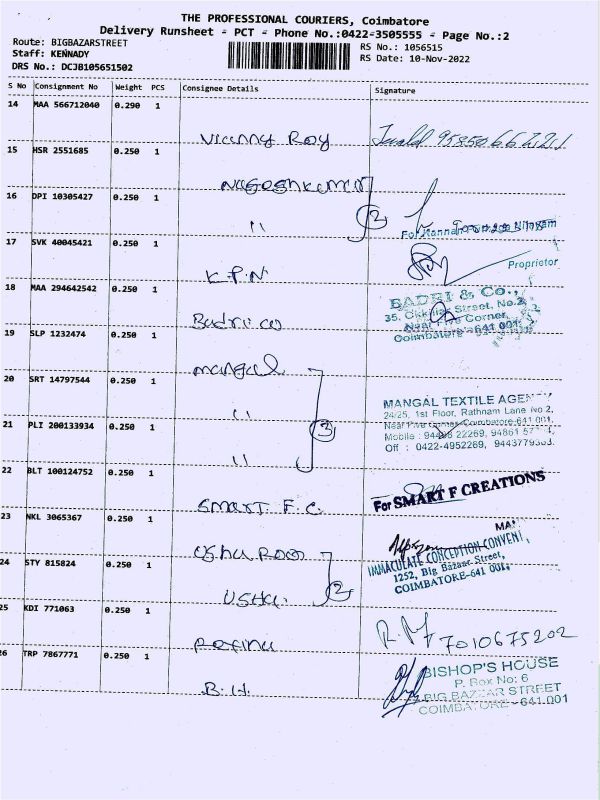 THE PROFESSIONAL COURIERS, Coimbatore
Delivery Runsheet - PCT - Phone No.:0422-3505555 - Page No.:2
Route: BIGBAZARSTREET
Staff: KENNADY
DRS No.: DCJB105651502
RS No.: 1056515
RS Date: 10-Nov-2022
S No Consignment No Weight PCS Consignee Details Signature
14 MAA 566712040 0.290 1
Vianny Roy
9585066221
15 HSR 2551685 0.250 1
Nageshkumar
16 DPI 10305427 0.250 1
"
2
17 SVK 40045421 0.250 1
K.P.N
Proprietor
18 MAA 294642542 0.250 1
Badri co
BADRI & Co.,
35, Street, No.2,
Near Five Corner,
Coimbatore - 641 001.
19 SLP 1232474 0.250 1
mangal
20 SRT 14797544 0.250 1
"
3
21 PLI 200133934 0.250 1
"
MANGAL TEXTILE AGENCY
24/25, 1st Floor, Rathnam Lane No 2,
Near Five Corner, Coimbatore-641 001.
Mobile : 94426 22269, 94861
Off : 0422-4952269,
22 BLT 100124752 0.250 1
Smart F. C.
For SMART F CREATIONS
23 NKL 3065367 0.250 1
Usha Rooo
24 STY 815824 0.250 1
Usha.
2
IMMACULATE CONCEPTION CONVENT,
1252, Big Bazaar Street,
COIMBATORE-641 001.
25 KDI 771063 0.250 1
R.M
7010675202
26 TRP 7867771 0.250 1
B.H.
BISHOP'S HOUSE
P. Box No: 6
BIG BAZAAR STREET
COIMBATORE - 641 001